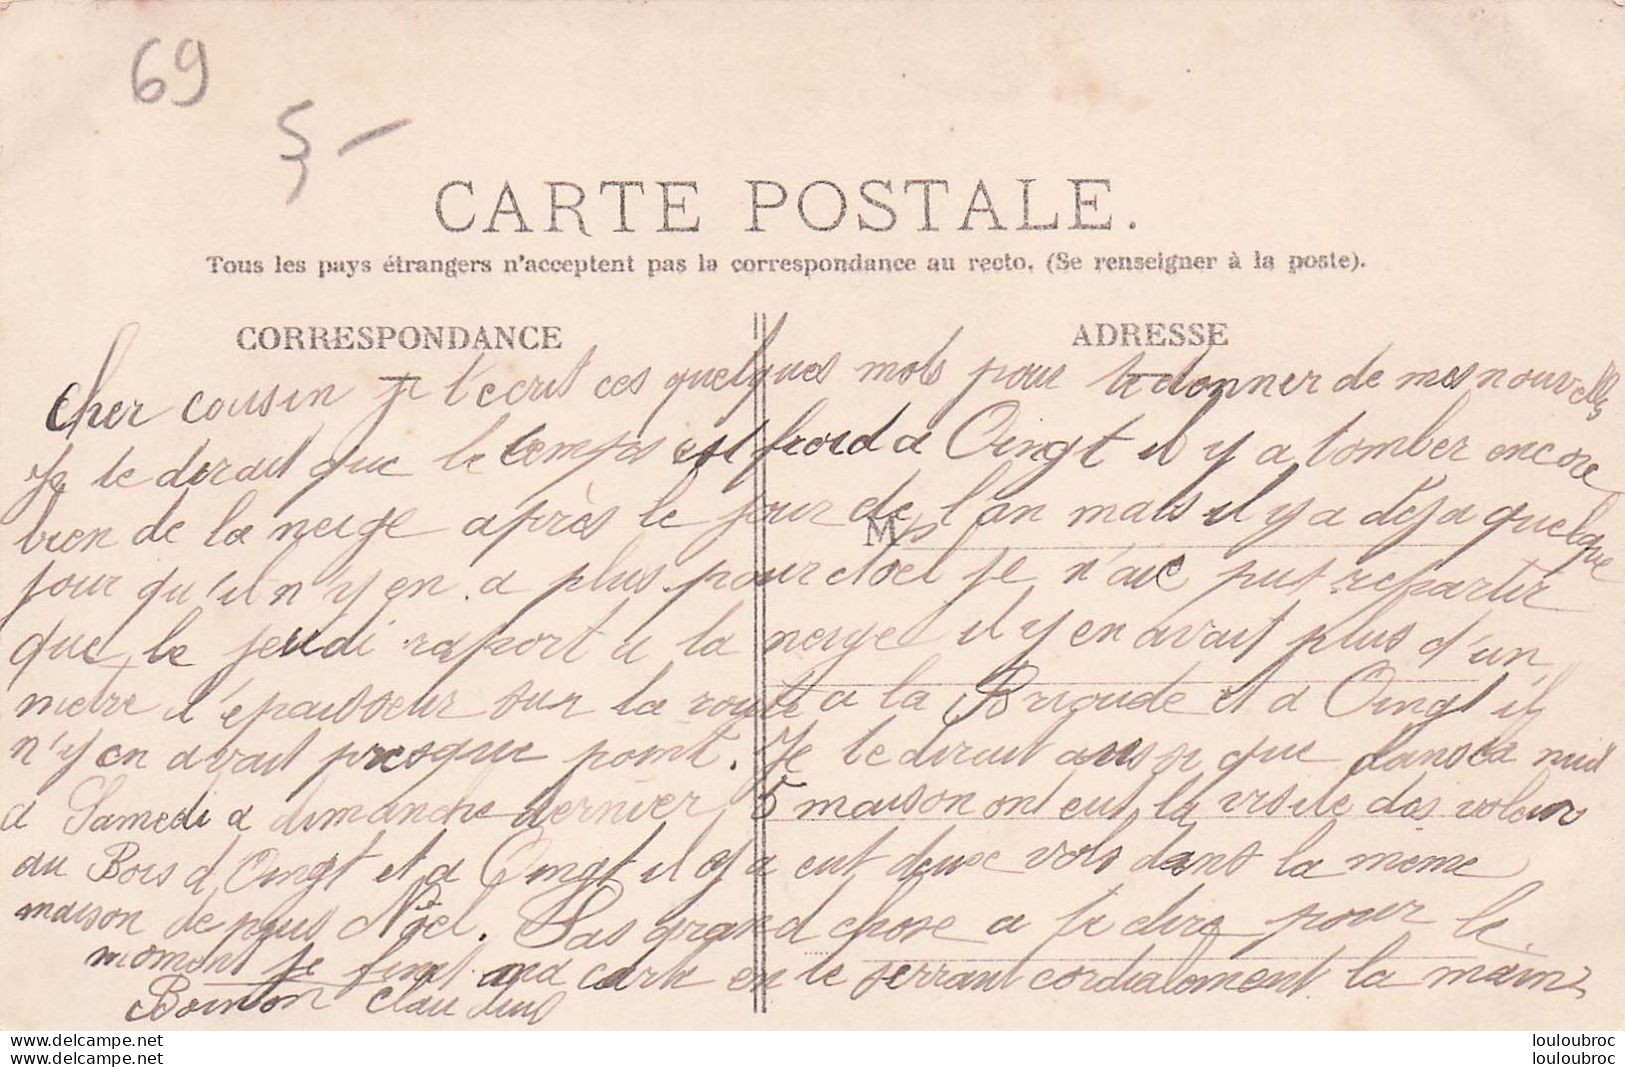 69
5 -
CARTE POSTALE.
Tous les pays étrangers n'acceptent pas la correspondance au recto. (Se renseigner à la poste).
CORRESPONDANCE
ADRESSE
Cher cousin je t'ecrit ces quelques mots pour te donner de mes nouvelles
Je te dirait que le temps est froid a Oingt il y a tomber encore
bien de la neige après le jour de l'an mais il y a deja quelque
M
jour qu'il n'y en a plus pour Noel je n'aie put repartir
que le jeudi raport a la neige il y en avait plus d'un
metre d'épaisseur sur la route a la Brigude et a Oingt il
n'y en avait presque point. Je te dirait aussi que dans la nuit
a Samedi a dimanche dernier 5 maison ont eut la visite des voleurs
au Bois d'Oingt et a Oingt il y a eut deux vols dans la meme
maison depuis Noël. Pas grand chose a te dire pour le
moment je finit ma carte en te serrant cordialement la main
Boinon Claudius
louloubroc
louloubroc